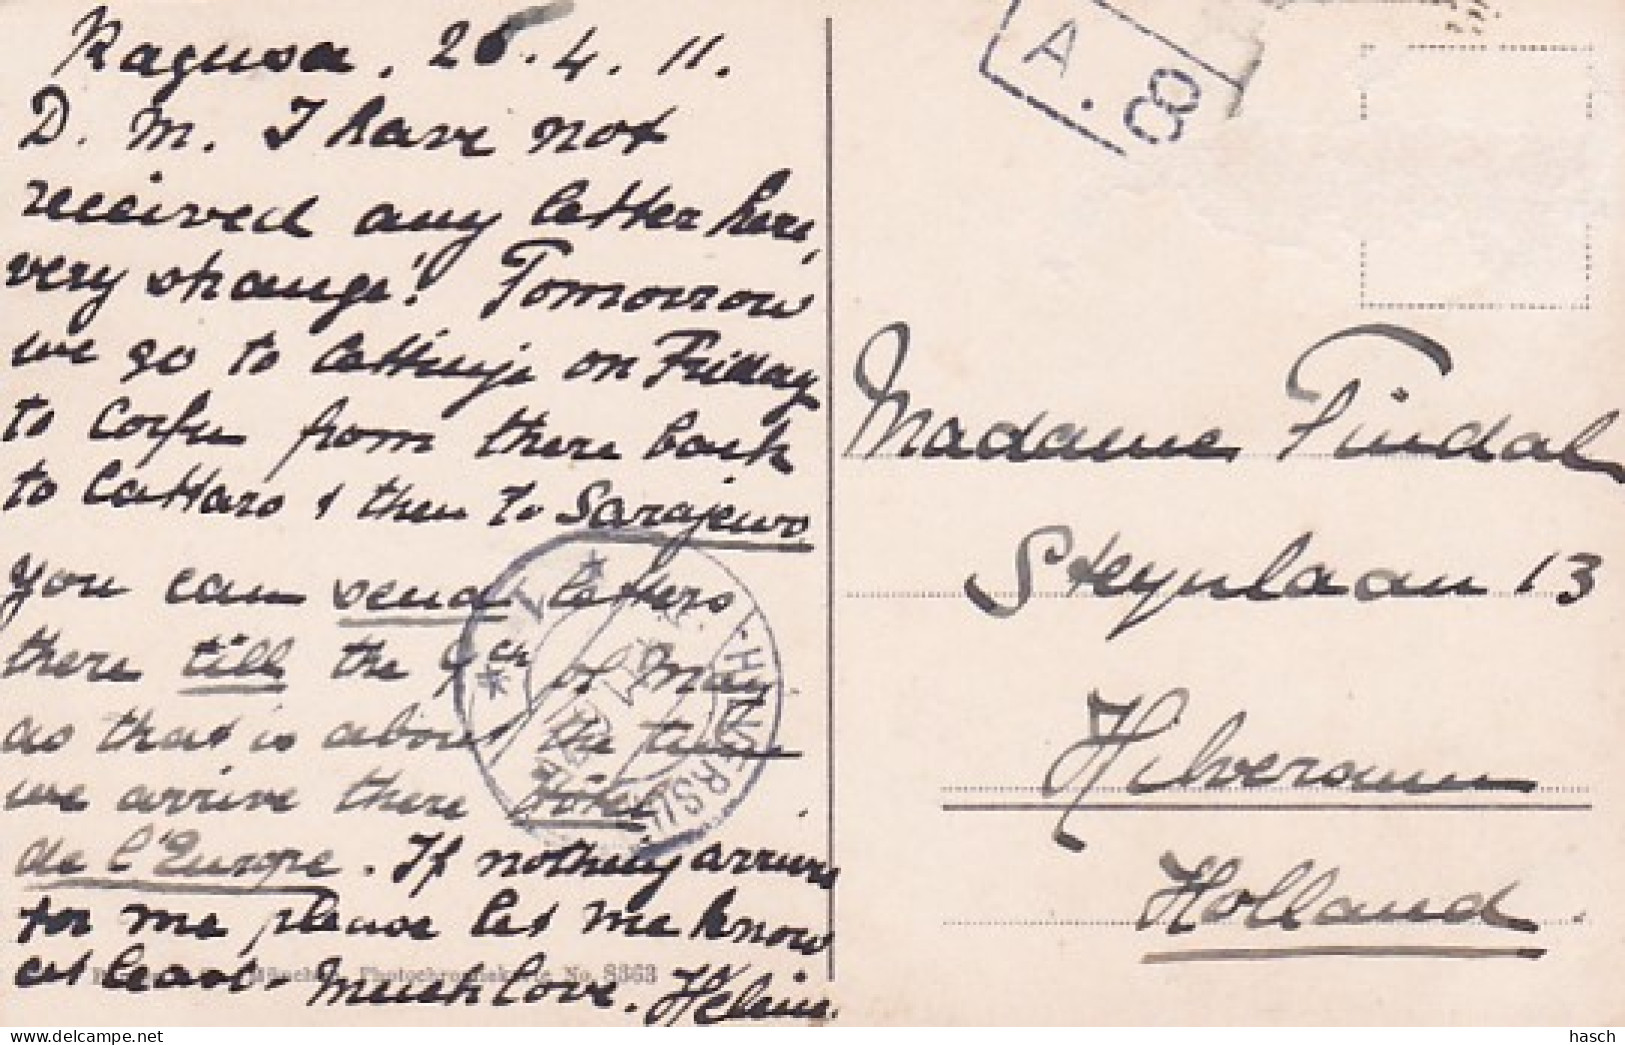 Ragusa. 26.4.11.
D. M. I have not
received any letter here,
very strange! Tomorrow
we go to Cettinje on Friday
to Corfu from there back
to Cattaro & then to Sarajewo
you can send letters
there till the 9th of May
as that is about the time
we arrive there Hôtel
de l'Europe. If nothing arrives
for me please let me know
at least. Much love. Héline.
München. Photochromiekarte No. 8363
HILVERSUM
A. 8
Madame Findal
Steynlaan 13
Hilversum
Holland.
hasch